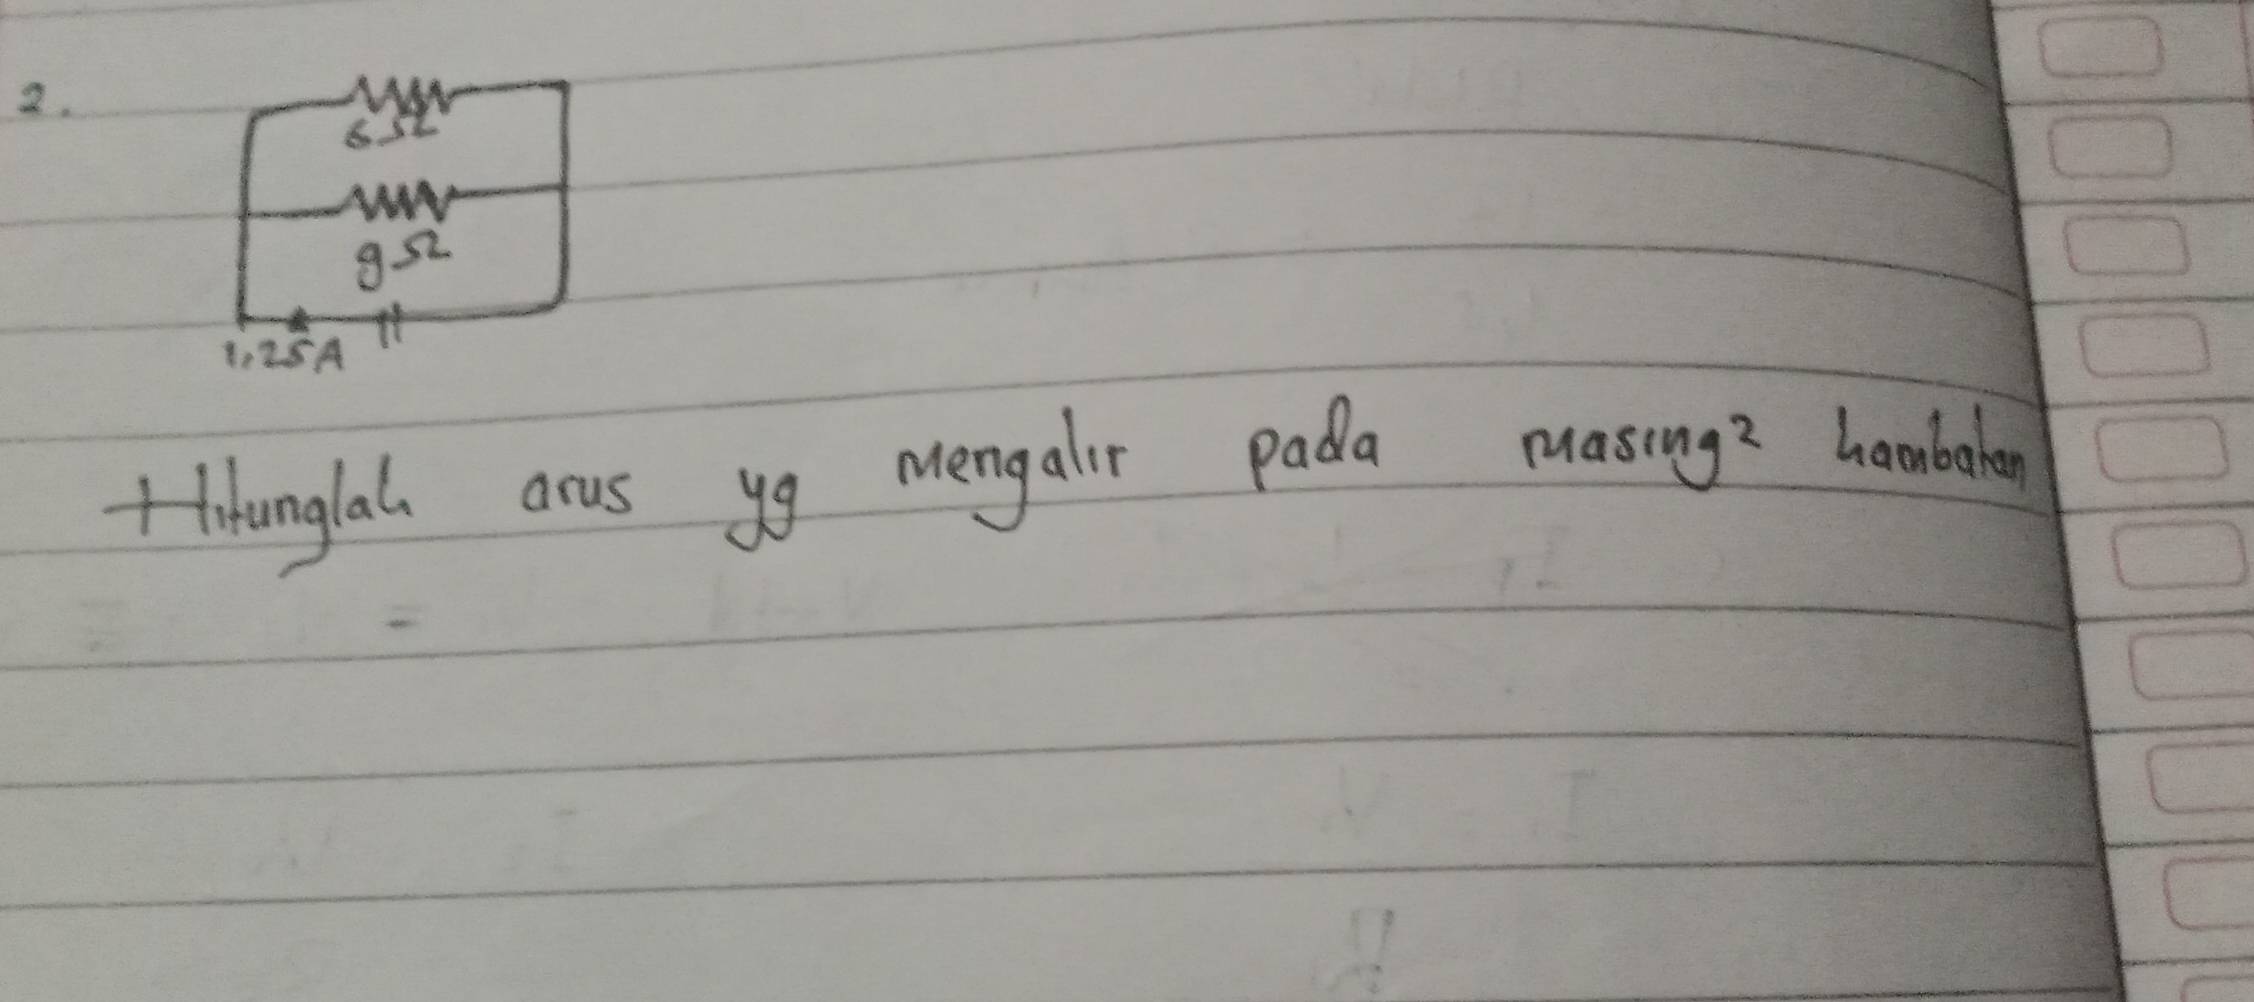 2.
6 Ω
9 Ω
1,25 A
Hitunglah arus yg mengalir pada masing² hambatan